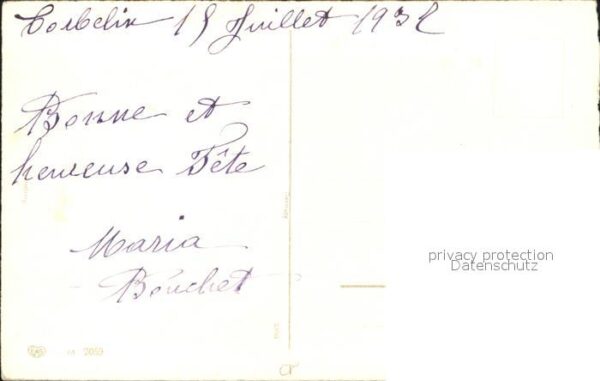 Corbelin 15 Juillet 1932
Bonne et
heureuse Fête
Maria
Bouchet
privacy protection
Datenschutz
2050